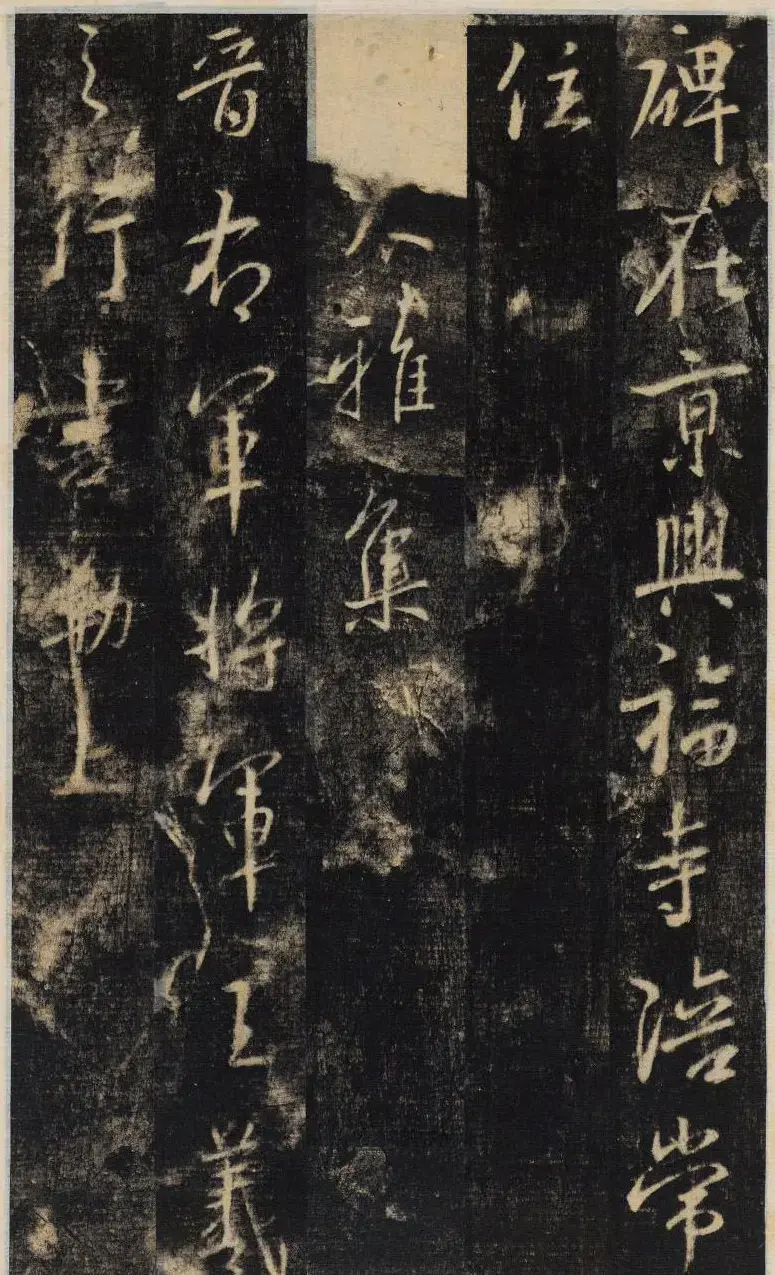 碑在京興福寺陪常
住
大雅集
晉右軍將軍王羲
之行書勒上